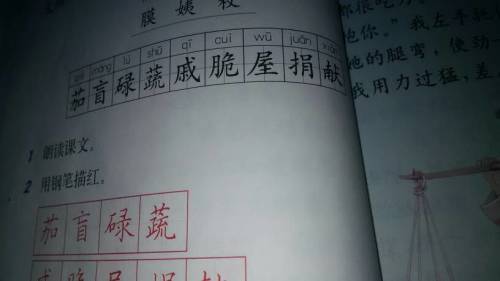 膜 姨
máng lù shū qī cuì wū juān xiàn
茄 盲 碌 蔬 戚 脆 屋 捐 献
1 朗读课文。
2 用钢笔描红。
茄 盲 碌 蔬
都很吃力
你。”我左手
他的腿弯，使劲
我用力过猛，差